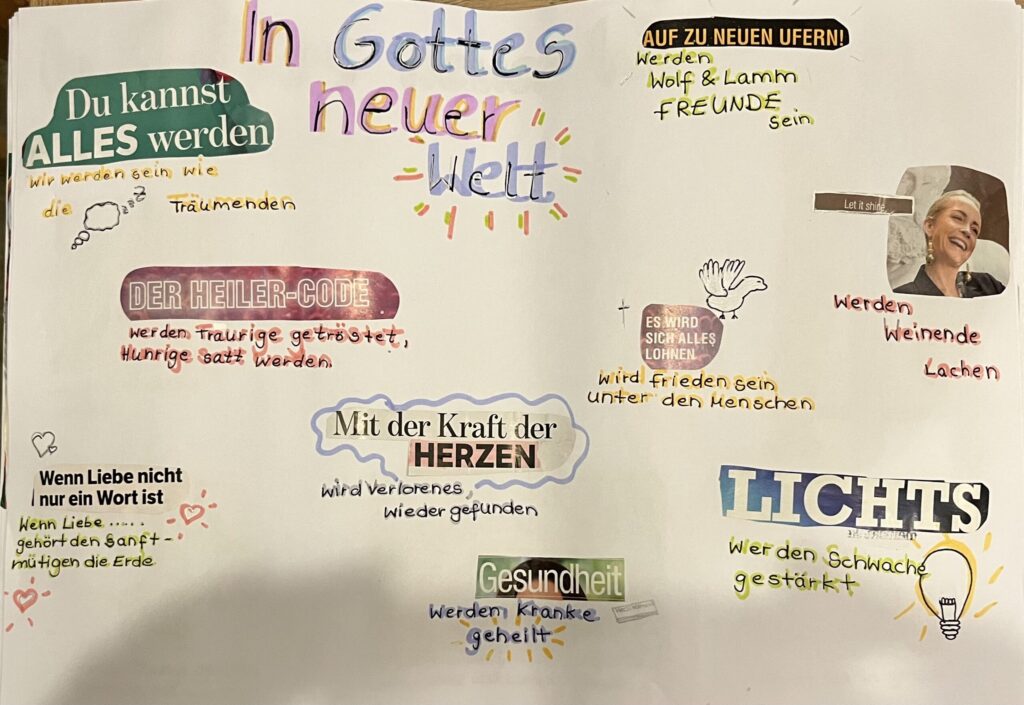 In Gottes
neuer
Welt
AUF ZU NEUEN UFERN!
Werden
Wolf & Lamm
FREUNDE
sein
Du kannst
ALLES werden
Wir werden sein wie
die Träumenden
Let it shine
Werden
Weinende
Lachen
DER HEILER-CODE
Werden Traurige getröstet,
Hunrige satt werden.
ES WIRD
SICH ALLES
LOHNEN
Wird Frieden sein
unter den Menschen
Mit der Kraft der
HERZEN
Wird Verlorenes,
Wieder gefunden
Wenn Liebe nicht
nur ein Wort ist
Wenn Liebe .....
gehört den Sanft-
mütigen die Erde
LICHTS
Werden Schwache
gestärkt
Gesundheit
Werden Kranke
geheilt